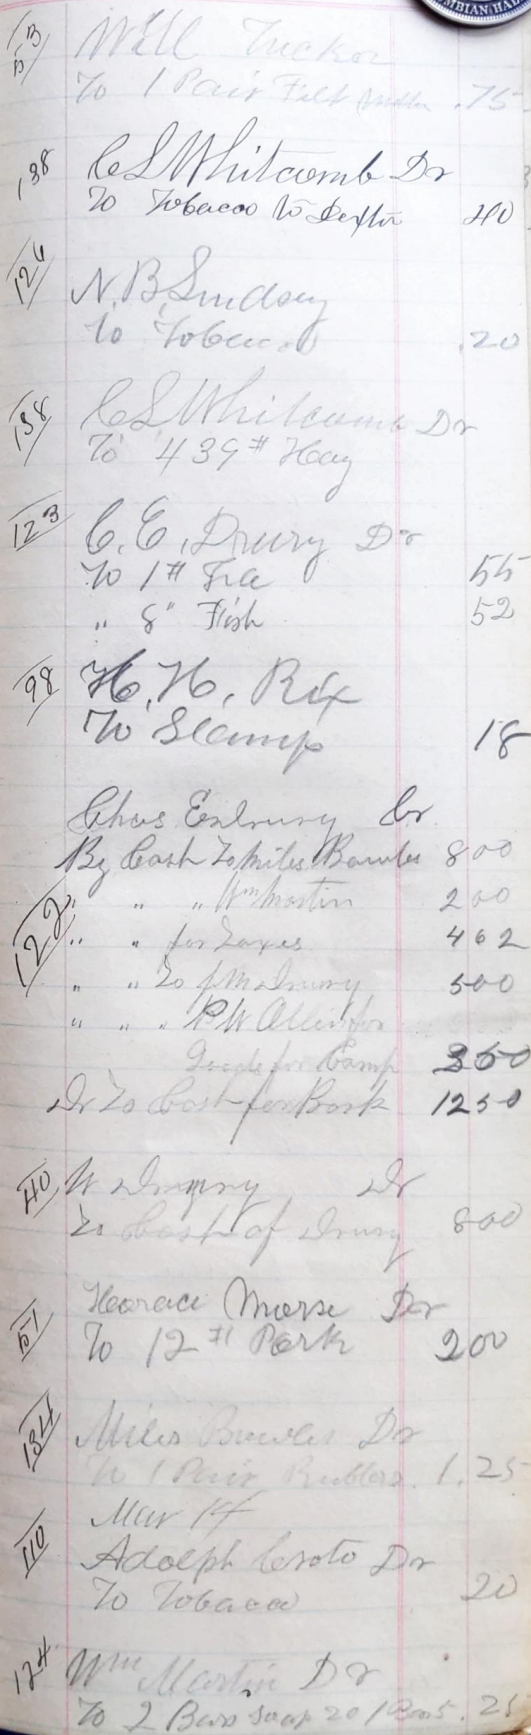 MBIAN HAL
53 Will Tucker
To 1 Pair Felt .75
138 C L Whitcomb Dr
To Tobacco to Dexter 40
126 N. B. Lindsay
To Tobacco .20
138 C L Whitcomb Dr
To 439 # Hay
123 C. E. Drury Dr
To 1 # Tea 55
" 8 " Fish 52
98 H. H. Rix
To Stamp 18
Chas E Drury Cr
By Cash To Miles Bowles 800
122 " " " Wm Martin 200
" " for Taxes 462
" " To J M Drury 500
" " " P W Allen for
Goods for Camp 350
Dr To Cash for Bark 1250
40 W Drury Dr
To Cash of Drury 800
51 Horace Morse Dr
To 12 # Pork 200
134 Miles Bowles Dr
To 1 Pair Rubbers 1.25
Mar 14
110 Adolph Croto Dr
To Tobacco 20
124 Wm Martin Dr
To 2 Bars soap 20 1 5 .25